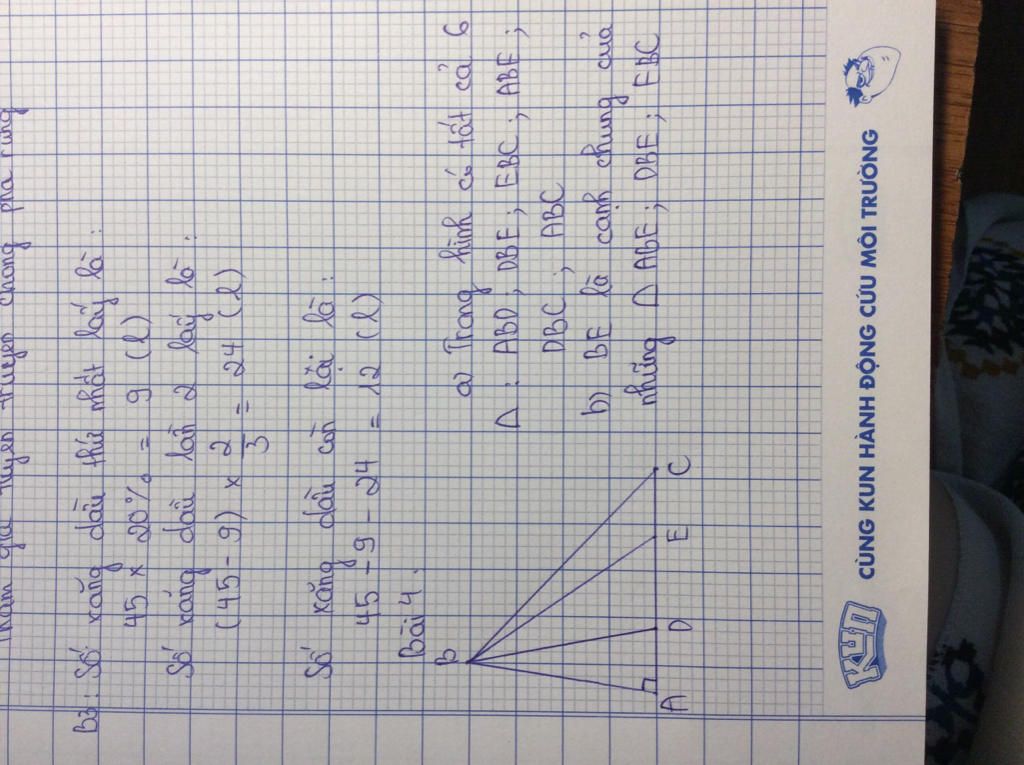 tham gia tuyên truyền chống phá rừng
B3: Số xăng dầu thứ nhất lấy là:
45 x 20% = 9 (l)
Số xăng dầu lần 2 lấy là:
(45 - 9) x 2/3 = 24 (l)
Số xăng dầu còn lại là:
45 - 9 - 24 = 12 (l)
Bài 4.
B
A D E C
a) Trong hình có tất cả 6
Δ: ABD; DBE; EBC; ABE;
DBC; ABC
b) BE là cạnh chung của
những Δ ABE; DBE; EBC
KUN CÙNG KUN HÀNH ĐỘNG CỨU MÔI TRƯỜNG